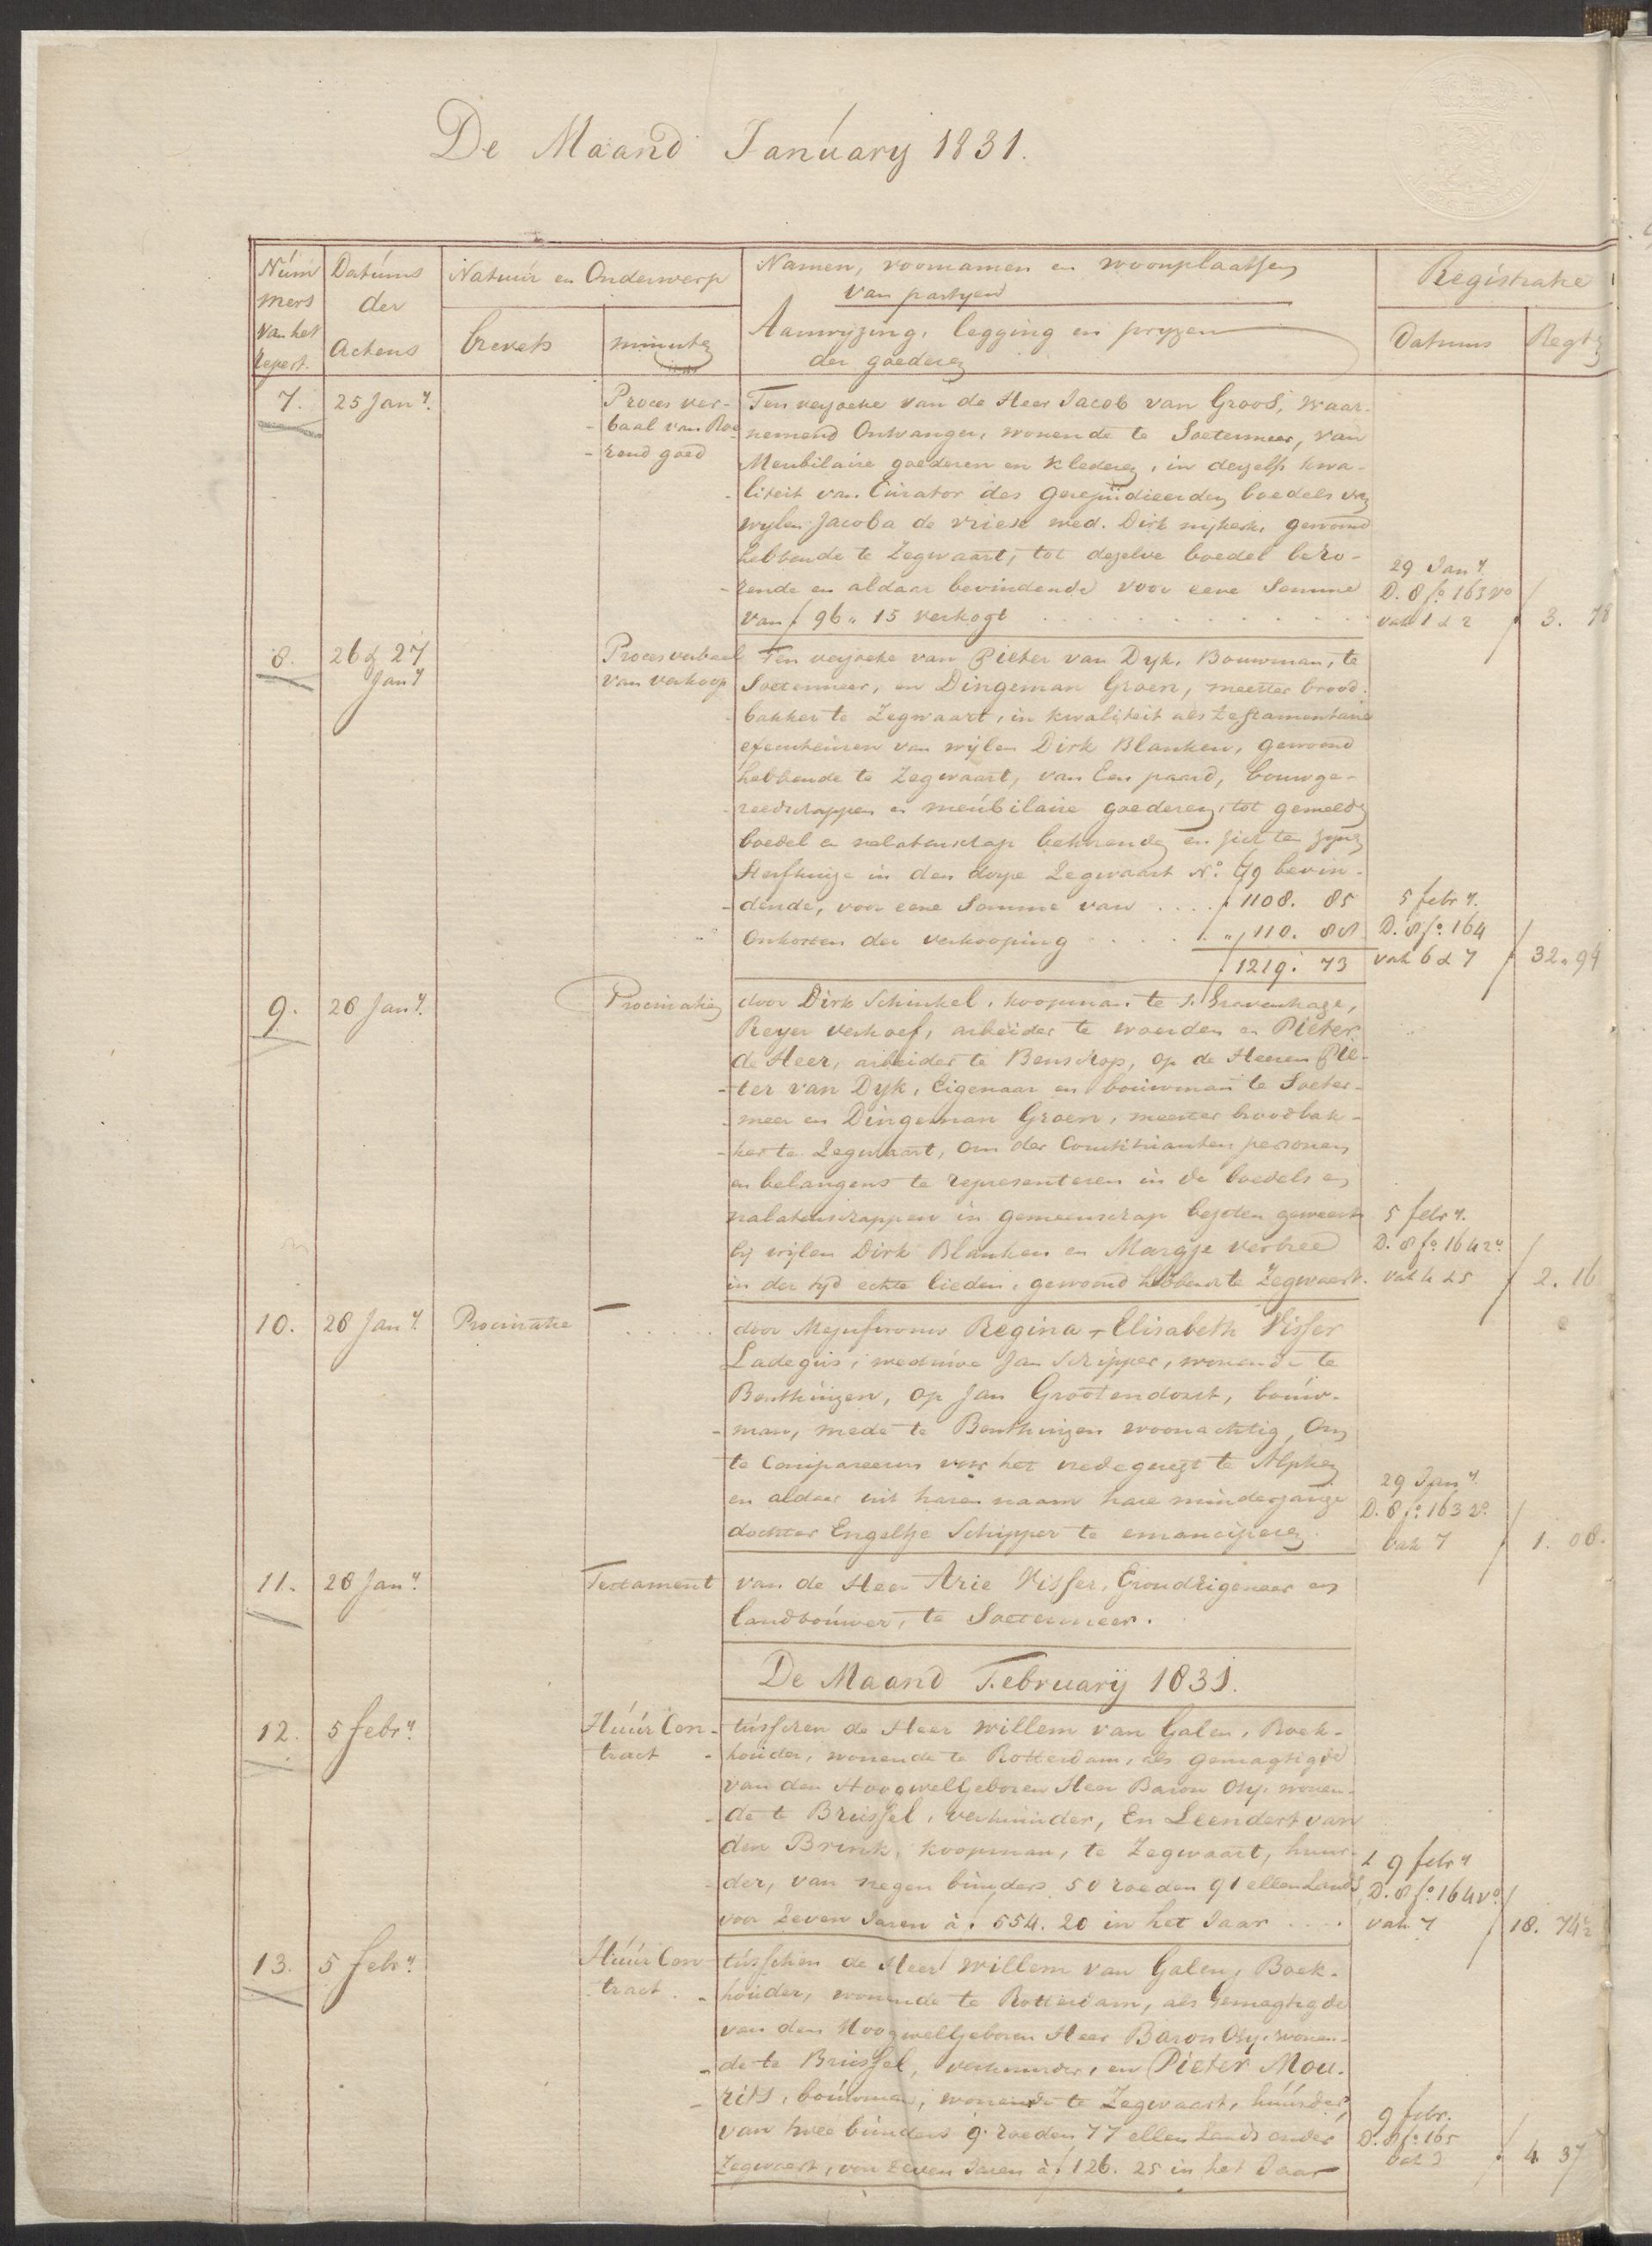 De Maand January 1831.
Num
mers
van het
repert.
Datums
der
Actens
Natuur en Onderwerp
brevets
minuten
Namen, voornamen en woonplaatsen
van partyen
Aanwyzing, legging en pryzen
der goederen
Registratie
Datums
Regt
7.
25 Jany.
Proces ver-
baal van Roe
rend goed
Ten verzoeke van de Heer Jacob van Groos, waar-
nemend Ontvanger, wonende te Soetermeer, van
Meubilaire goederen en klederen, in deszelfs kwa-
liteit van Curator des gerepudieerden boedels van
wylen Jacoba de Vriese wed. Dirk nykerk, gewoond
hebbende te Zegwaart, tot dezelve boedel beho-
rende en aldaar bevindende voor eene Somme
van ƒ 96 " 15 verkogt
29 Jany.
D. 8 fo. 163 vo
vak 1 & 2
ƒ 3. 78
8.
26 & 27
Jany
Proces verbaal
van verkoop
Ten verzoeke van Pieter van Dyk, Bouwman, te
Soetermeer, en Dingeman Groen, meester brood-
bakker te Zegwaart, in kwaliteit als testamentaire
executeuren van wijlen Dirk Blanken, gewoond
hebbende te Zegwaart, van Een paard, bouwge-
reedschappen en meubilaire goederen, tot gemelde
boedel en nalatenschap behorende en zich ten zynen
Sterfhuize in den dorpe Zegwaart No. 49 bevin-
dende, voor eene Somme van . . . . ƒ 1108. 85
Onkosten der verkooping . . . . " 110. 88
ƒ 1219. 73
5 febry.
D. 8 fo. 164
vak 6 & 7
ƒ 32 " 94
9.
28 Jany.
Procuratien
door Dirk Schinkel, koopman te s. Gravenhage,
Reyer Verhoef, arbeider te woerden en Pieter
de Heer, arbeider te Benschop, op de Heeren Pie-
ter van Dyk, Eigenaar en bouwman te Soeter-
meer en Dingeman Groen, meester broodbak-
ker te Zegwaart, om der Constituanten personen
en belangens te representeren in de boedels en
nalatenschappen in gemeenschap bezeten geweest
by wijlen Dirk Blanken en Margje Verhee
in der tyd echte lieden, gewoond hebbende te Zegwaart.
5 febry.
D. 8 fo. 164 vo
vak 4 & 5
ƒ 2. 16
10.
28 Jany.
Procuratie
door Mejufvrouw Regina Elisabeth Visser
Ladegus, weduwe Jan Schipper, wonende te
Benthuizen, op Jan Grootendorst, bouw-
man, mede te Benthuizen woonachtig, Om
te Compareeren voor het vredegeregt te Alphen
en aldaar uit haren naam hare minderjarige
dochter Engeltje Schipper te emanciperen.
29 Jany.
D. 8 fo. 163 vo.
vak 7
ƒ 1. 08.
11.
28 Jany.
Testament
van de Heer Arie Visser, Grondeigenaar en
landbouwer, te Soetermeer.
De Maand February 1831.
12.
5 febry.
Huur Con-
tract
tusschen de Heer Willem van Galen, Boek-
houder, wonende te Rotterdam, als gemagtigde
van den Hoogwelgeboren Heer Baron Osy, wonen-
de te Brussel, verhuurder, En Leendert van
den Brink, koopman, te Zegwaart, huur-
der, van negen bunders 50 roeden 91 ellen Lands
voor Zeven Jaren à ƒ 554. 20 in het Jaar . . . .
9 febry
D. 8 fo. 164 vo.
vak 7
ƒ 18. 74½
13.
5 febry.
Huur Con-
tract.
tusschen de Heer Willem van Galen, Boek-
houder, wonende te Rotterdam, als Gemagtigde
van den Hoogwelgeboren Heer Baron Osy, wonen-
de te Brussel, verhuurder, en Pieter Mou-
rits, bouwman, wonende te Zegwaart, huurder,
van twee bunders 9 roeden 77 ellen Lands onder
Zegwaart, voor Zeven Jaren à ƒ 126. 25 in het Jaar
9 febr.
D. 8 fo. 165
vak
ƒ 4 37